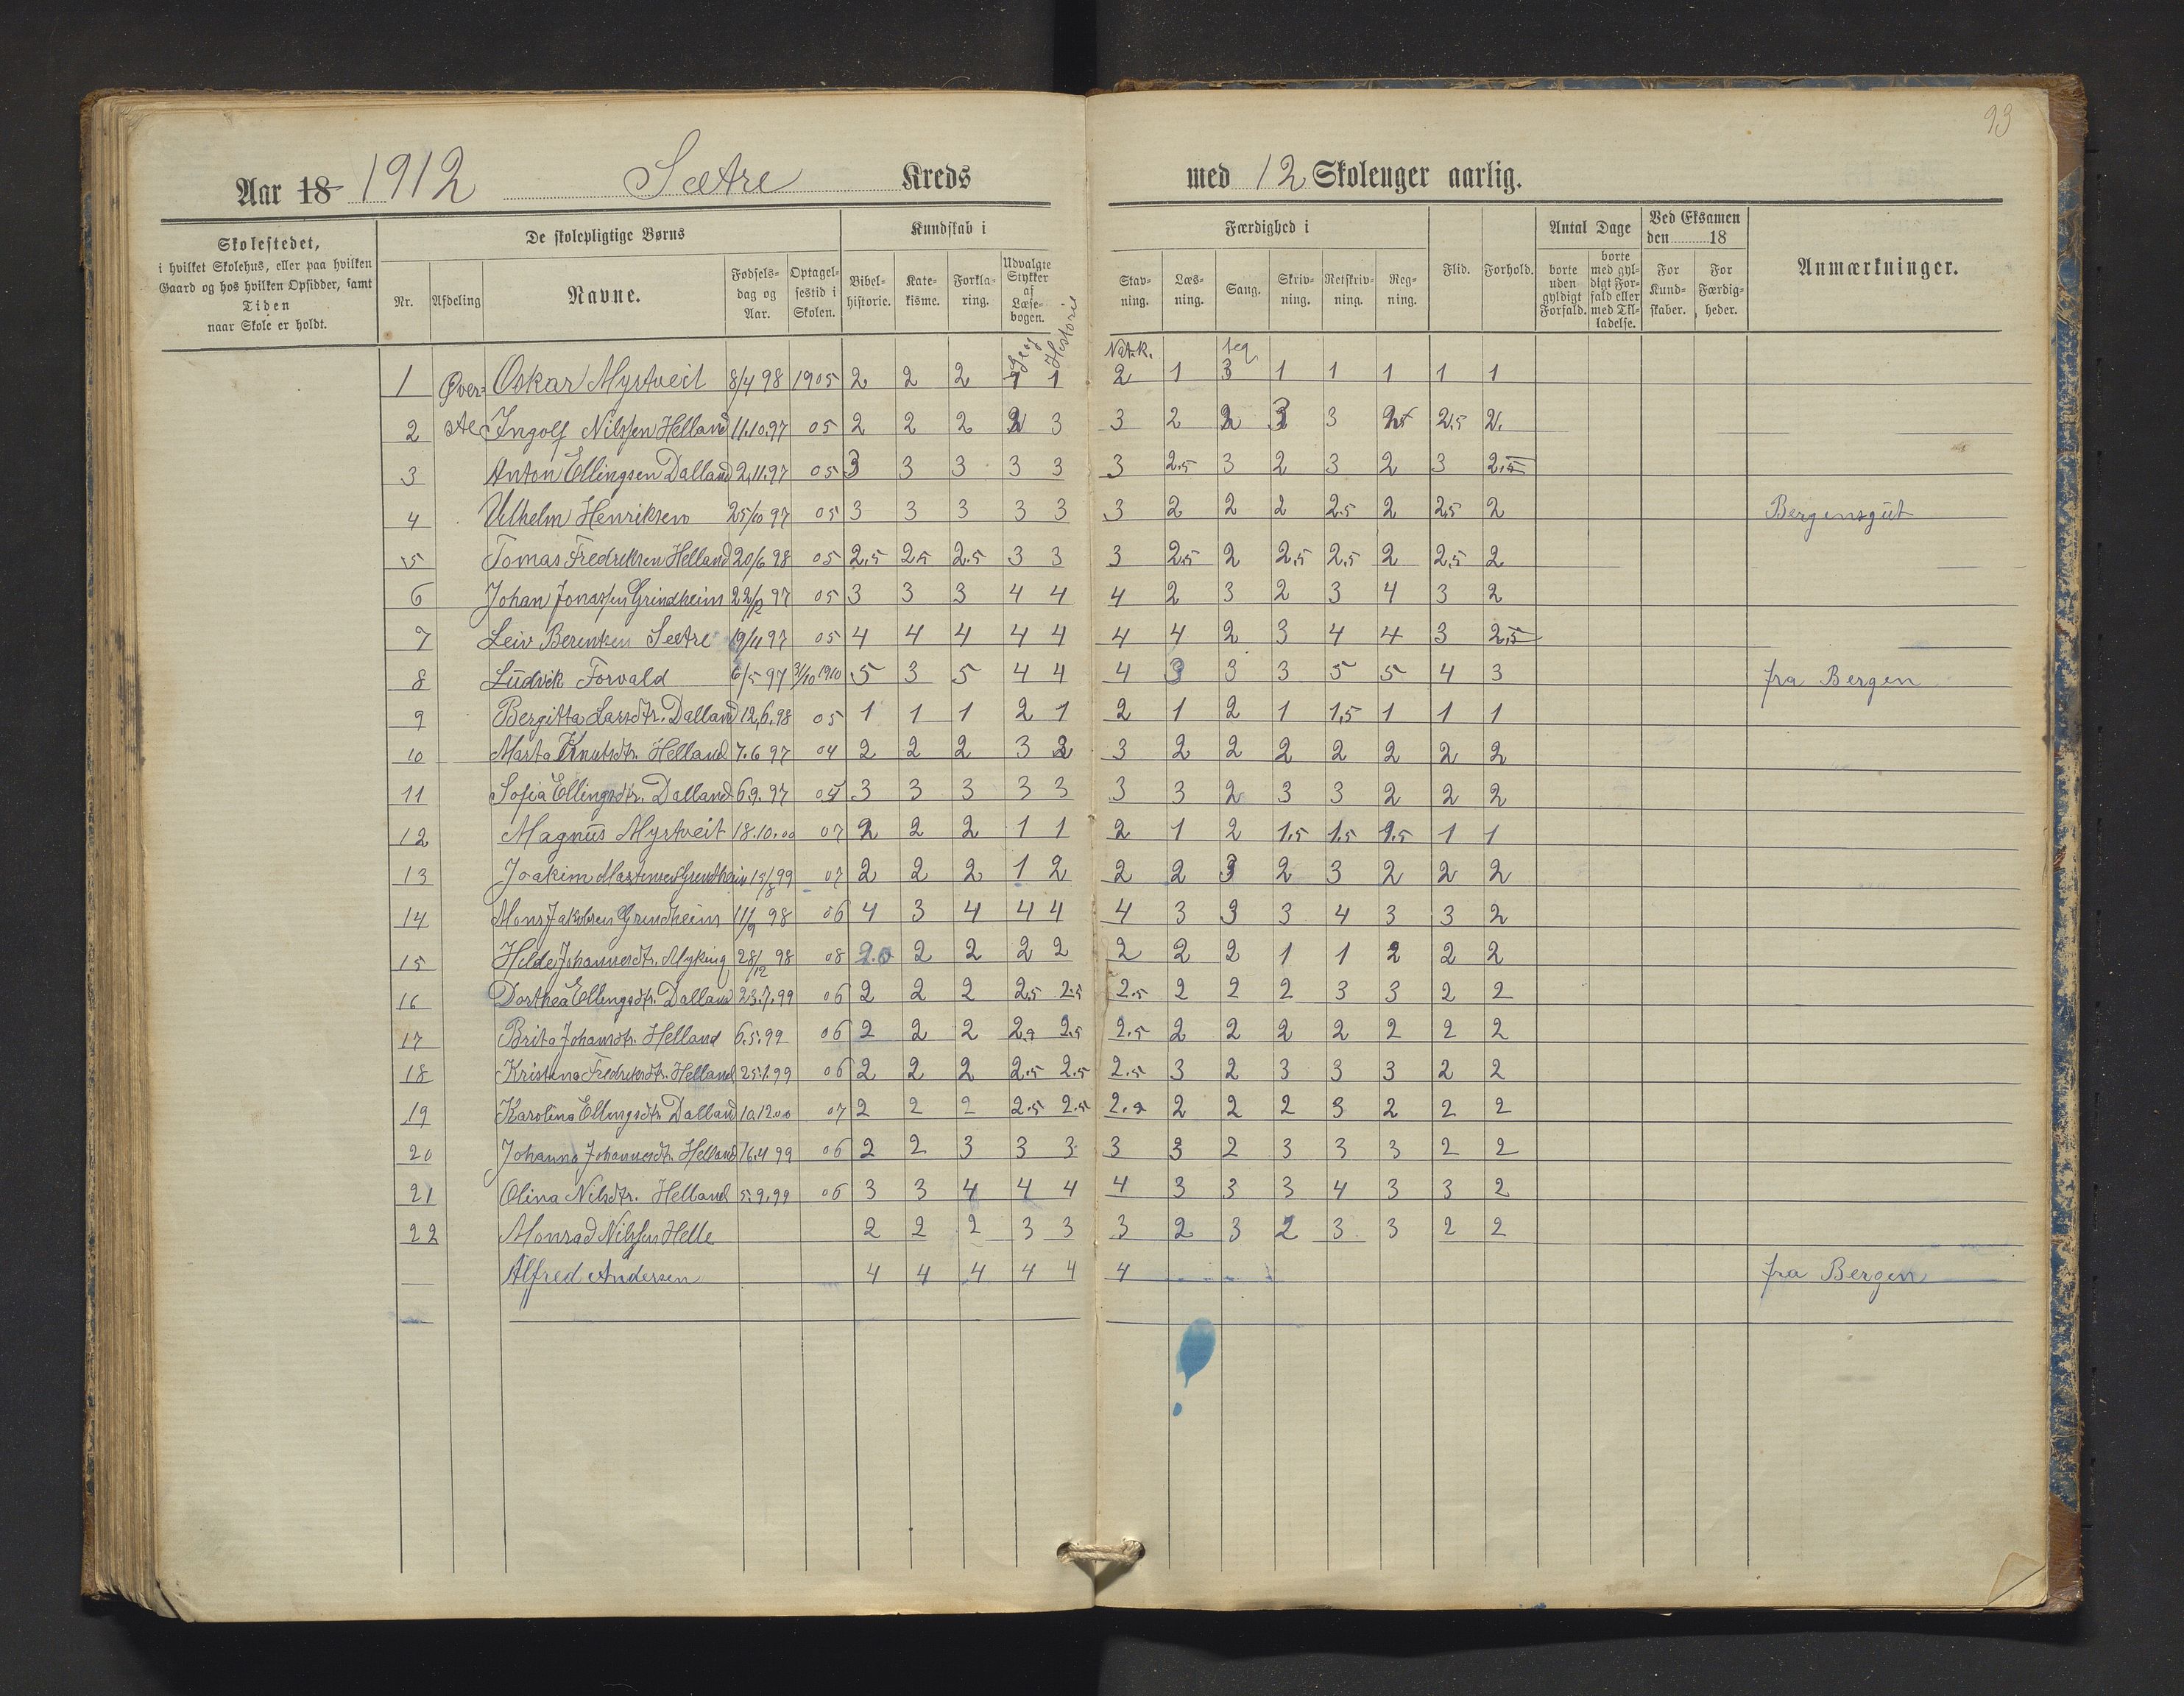 93
Aar 18 1912 Sætre Kreds med 12 Skoleuger aarlig.
Skolestedet, i hvilket Skolehus, eller paa hvilken Gaard og hos hvilken Opsidder, samt Tiden naar Skole er holdt.
De skolepligtige Børns
Nr. Afdeling Navne. Fødselsdag og Aar. Optagelsestid i Skolen.
Kundskab i
Bibelhistorie. Katekisme. Forklaring. Udvalgte Stykker af Læsebogen. Geog Historie
Færdighed i
Stavning. Læsning. Sang. Skrivning. Retskrivning. Regning.
Flid. Forhold.
Antal Dage
borte uden gyldigt Forfald. borte med gyldigt Forfald eller med Tilladelse.
Ved Eksamen den 18
For Kundskaber. For Færdigheder.
Anmærkninger.
Nat.k. teg
1 Øverste Oskar Myrtveit 8/4 98 1905 2 2 2 1 1 2 1 3 1 1 1 1 1
2 Ingolf Nilssen Helland 11.10.97 05 2 2 2 2 3 3 2 2 3 3 2.5 2.5 2.
3 Anton Ellingsen Dalland 2.11.97 05 3 3 3 3 3 3 2.5 3 2 3 2 3 2.5
4 Vilhelm Henriksen 25/10 97 05 3 3 3 3 3 3 2 2 2 2.5 2 2.5 2 Bergensgut
5 Tomas Fredriksen Helland 20/6 98 05 2.5 2.5 2.5 3 3 3 2.5 2 2.5 2.5 2 2.5 2
6 Johan Jonassen Grindheim 22/12 97 05 3 3 3 4 4 4 2 3 2 3 4 3 2
7 Leiv Berentsen Sætre 19/11 97 05 4 4 4 4 4 4 4 2 3 4 4 3 2.5
8 Ludvik Torvald 6/5 97 3/10 1910 5 3 5 4 4 4 3 3 3 5 5 4 3 fra Bergen
9 Bergitta Larsdtr. Dalland 12.6.98 05 1 1 1 2 1 2 1 2 1 1.5 1 1 1
10 Marta Knutsdtr. Helland 7.6 97 04 2 2 2 3 3 3 2 2 2 2 2 2 2
11 Sofia Ellingsdtr. Dalland 6.9.97 04 3 3 3 3 3 3 3 2 3 3 2 2 2
12 Magnus Myrtveit 18.10.00 07 2 2 2 1 1 2 1 2 1.5 1.5 1.5 1 1
13 Joakim Martinsen Grindheim 19/8 99 07 2 2 2 1 2 2 2 3 2 3 2 2 2
14 Mons Jakobsen Grindheim 11/9 98 06 4 3 4 4 4 4 3 3 3 4 3 3 2
15 Helde Johannesdtr. Myking 28/12 98 08 2.0 2 2 2 2 2 2 2 1 1 2 2 2
16 Dorthea Ellingsdtr. Dalland 23.7.99 06 2 2 2 2.5 2.5 2.5 2 2 2 3 3 2 2
17 Brita Johansdtr. Helland 6.5.99 06 2 2 2 2.5 2.5 2.5 2 2 2 2 2 2 2
18 Kristina Fredriksdtr. Helland 25.1.99 06 2 2 2 2.5 2.5 2.5 3 2 3 3 3 2 2
19 Karolina Ellingsdtr Dalland 10.12.00 07 2 2 2 2.5 2.5 2.5 2 2 2 3 2 2 2
20 Johanna Johannesdtr. Helland 16.4 99 06 2 2 3 3 3 3 3 2 3 3 3 2 2
21 Olina Nilsdtr. Helland 5.9.99 06 3 3 4 4 4 4 3 3 3 4 3 3 2
22 Monrad Nilssen Helle 2 2 2 3 3 3 2 3 2 3 3 2 2
Alfred Andersen 4 4 4 4 4 4 fra Bergen